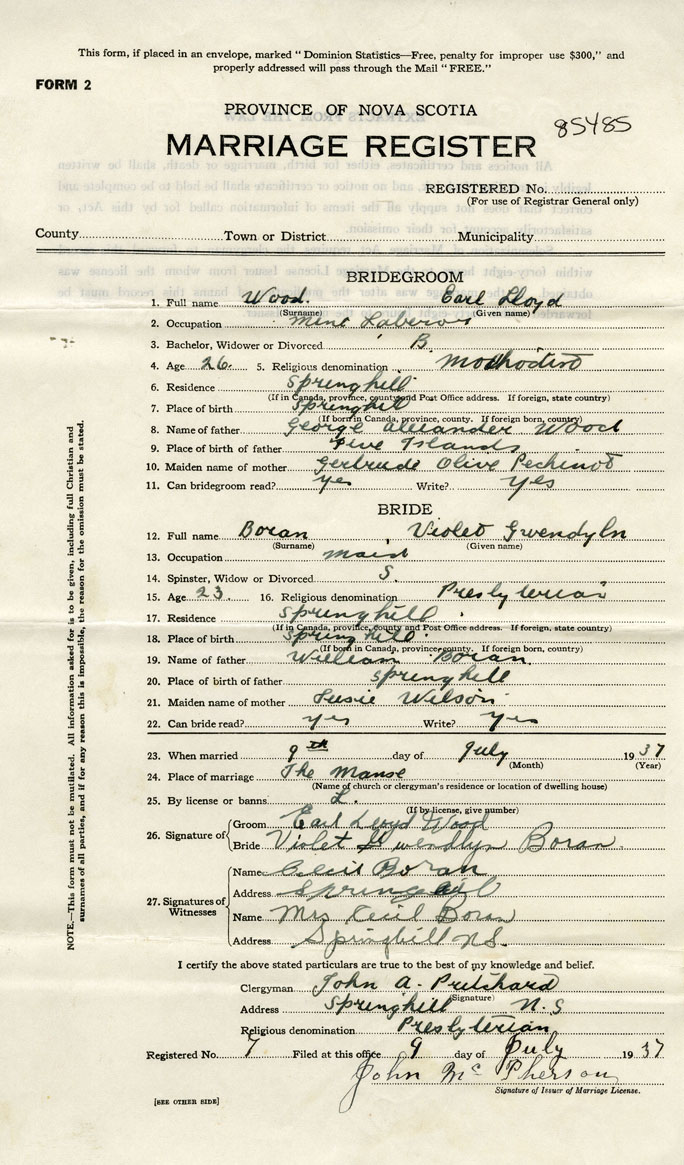 This form, if placed in an envelope, marked "Dominion Statistics—Free, penalty for improper use $300," and
properly addressed will pass through the Mail "FREE."
FORM 2
PROVINCE OF NOVA SCOTIA
85485
MARRIAGE REGISTER
REGISTERED No.
(For use of Registrar General only)
County Town or District Municipality
BRIDEGROOM
1. Full name Wood. Earl Lloyd
(Surname) (Given name)
2. Occupation Mine Laborer
3. Bachelor, Widower or Divorced B
4. Age 26. 5. Religious denomination Methodist
6. Residence Springhill
(If in Canada, province, county and Post Office address. If foreign, state country)
7. Place of birth Springhill
(If born in Canada, province, county. If foreign born, country)
8. Name of father George Alexander Wood
9. Place of birth of father Five Islands
10. Maiden name of mother Gertrude Olive Pechinot
11. Can bridegroom read? yes Write? yes
BRIDE
12. Full name Boran Violet Gwendyln
(Surname) (Given name)
13. Occupation maid
14. Spinster, Widow or Divorced S.
15. Age 23. 16. Religious denomination Presbyterian
17. Residence Springhill
(If in Canada, province, county and Post Office address. If foreign, state country)
18. Place of birth Springhill
(If born in Canada, province, county. If foreign born, country)
19. Name of father William Boran
20. Place of birth of father Springhill
21. Maiden name of mother Susie Wilson
22. Can bride read? yes Write? yes
23. When married 9th day of July 1937
(Month) (Year)
24. Place of marriage The Manse
(Name of church or clergyman's residence or location of dwelling house)
25. By license or banns L.
(If by license, give number)
26. Signature of
Groom Earl Lloyd Wood
Bride Violet Gwendlyn Boran
27. Signatures of Witnesses
Name Cecil Boran
Address Springhill
Name Mrs Cecil Boran
Address Springhill N.S.
I certify the above stated particulars are true to the best of my knowledge and belief.
Clergyman John A. Pritchard
(Signature)
Address Springhill N.S
Religious denomination Presbyterian
Registered No. 7 Filed at this office 9 day of July 1937
John McPherson
Signature of Issuer of Marriage License.
[SEE OTHER SIDE]
NOTE.—This form must not be mutilated. All information asked for is to be given, including full Christian and
surnames of all parties, and if for any reason this is impossible, the reason for the omission must be stated.